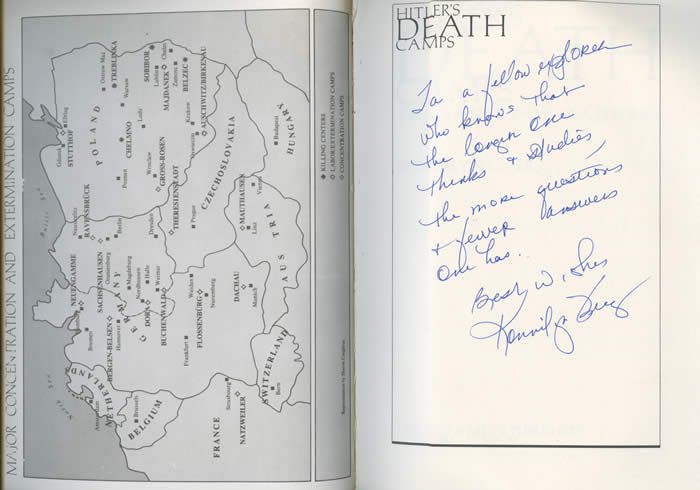 MAJOR CONCENTRATION AND EXTERMINATION CAMPS
North Sea
Baltic Sea
Elbląg
Gdańsk
STUTTHOF
POLAND
Ostrow Maz
TREBLINKA
Warsaw
SOBIBOR
Lublin
Chelm
MAJDANEK
Zamosc
BELZEC
CHELMNO
Lodz
Poznan
Wroclaw
GROSS-ROSEN
Krakow
Oswiecim
AUSCHWITZ/BIRKENAU
CZECHOSLOVAKIA
HUNGARY
Budapest
RAVENSBRÜCK
Berlin
Dresden
THERESIENSTADT
Prague
MAUTHAUSEN
Vienna
Linz
AUSTRIA
NEUENGAMME
SACHSENHAUSEN
Oranienburg
Magdeburg
GERMANY
Nordhausen
Halle
DORA
Weimar
BUCHENWALD
Weiden
FLOSSENBÜRG
Nuremburg
DACHAU
Munich
Bremen
BERGEN-BELSEN
Hannover
Frankfurt
NETHERLANDS
Amsterdam
BELGIUM
Brussels
FRANCE
Strasbourg
NATZWEILER
SWITZERLAND
Bern
KILLING CENTERS
LABOR/EXTERMINATION CAMPS
CONCENTRATION CAMPS
HITLER'S
DEATH
CAMPS
To a fellow explorer
who knows that
the longer one
thinks & studies,
the more questions
& fewer answers
one has.
Best Wishes
Konnilyn Feig